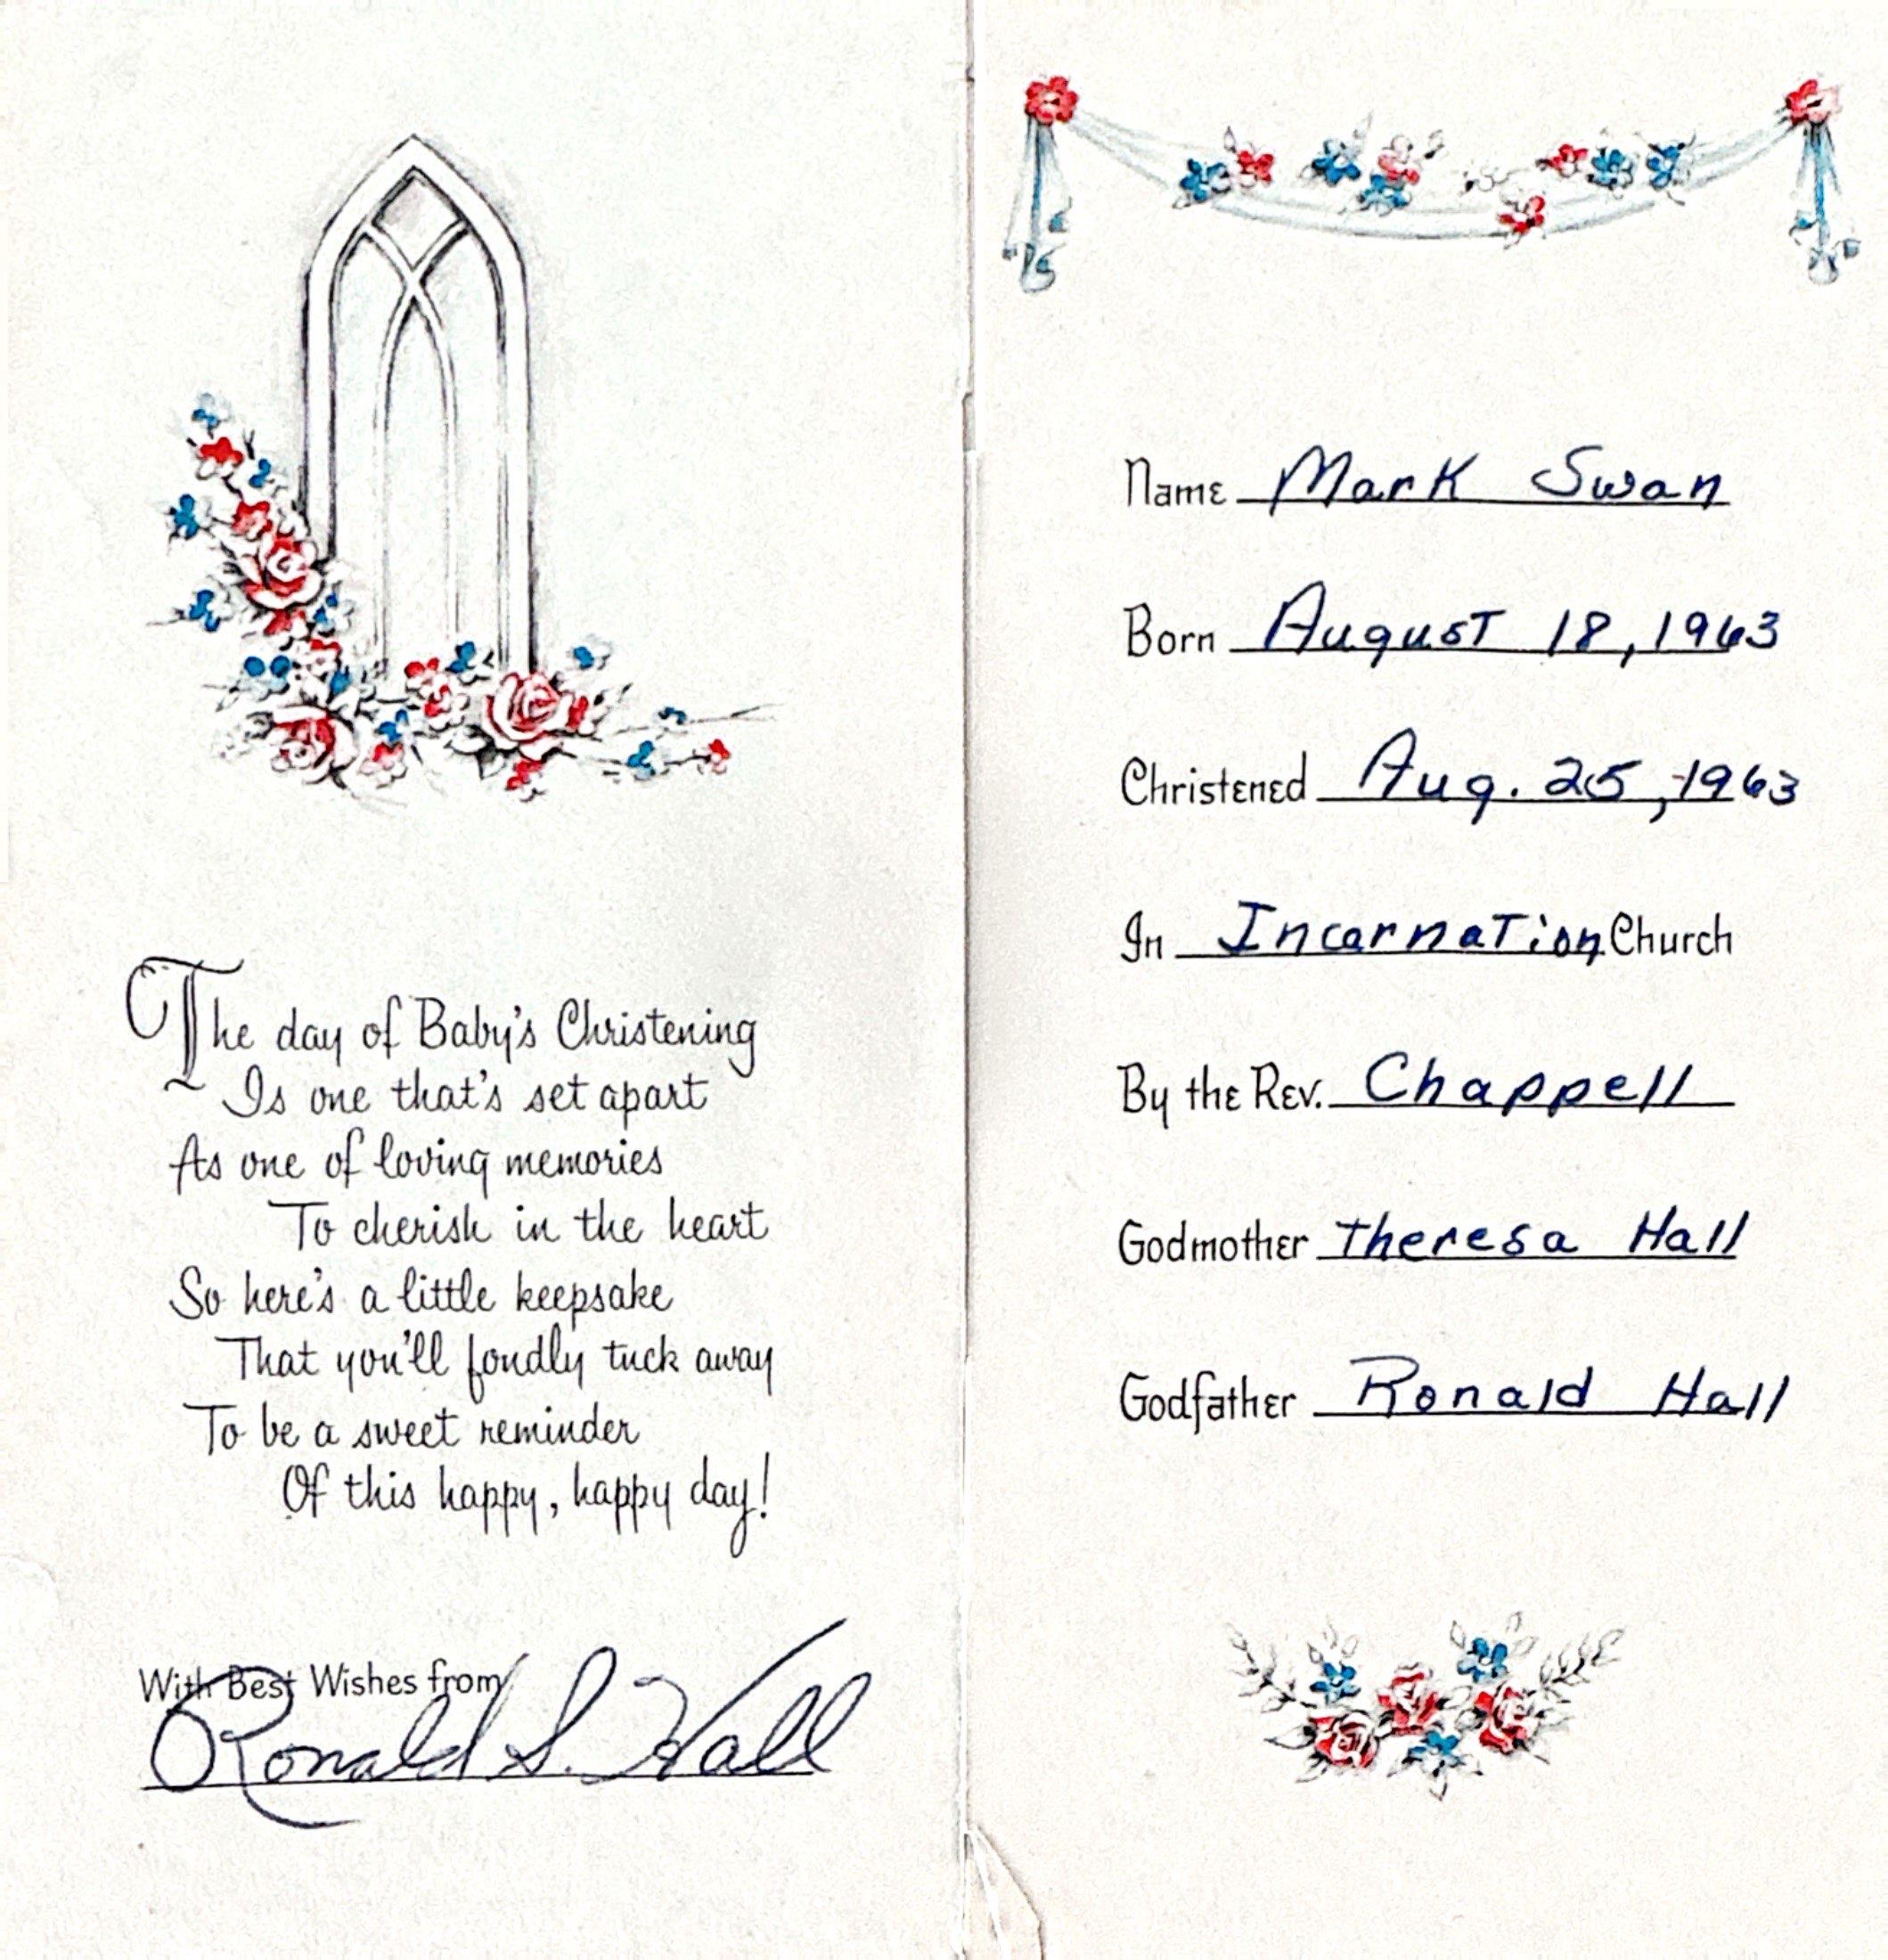 The day of Baby's Christening
Is one that's set apart
As one of loving memories
To cherish in the heart
So here's a little keepsake
That you'll fondly tuck away
To be a sweet reminder
Of this happy, happy day!
With Best Wishes from
Ronald S. Hall
Name Mark Swan
Born August 18, 1963
Christened Aug. 25, 1963
In Incarnation Church
By the Rev. Chappell
Godmother Theresa Hall
Godfather Ronald Hall